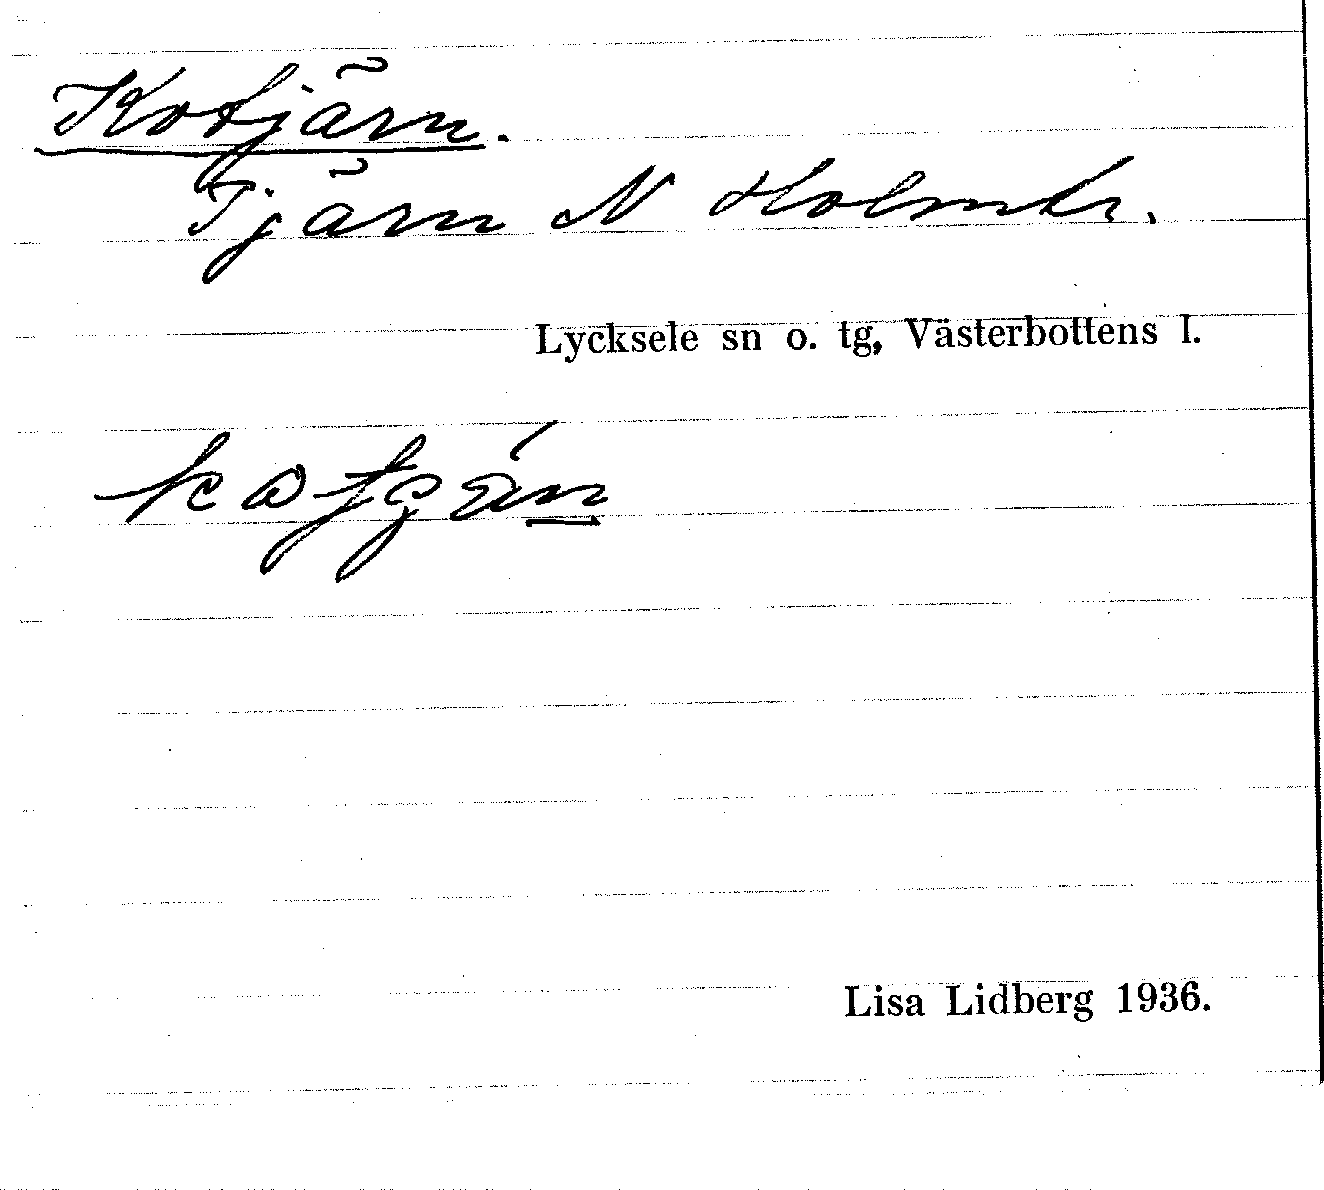 Kotjärn.
Tjärn N Holmtr.
Lycksele sn o. tg, Västerbottens l.
Lisa Lidberg 1936.